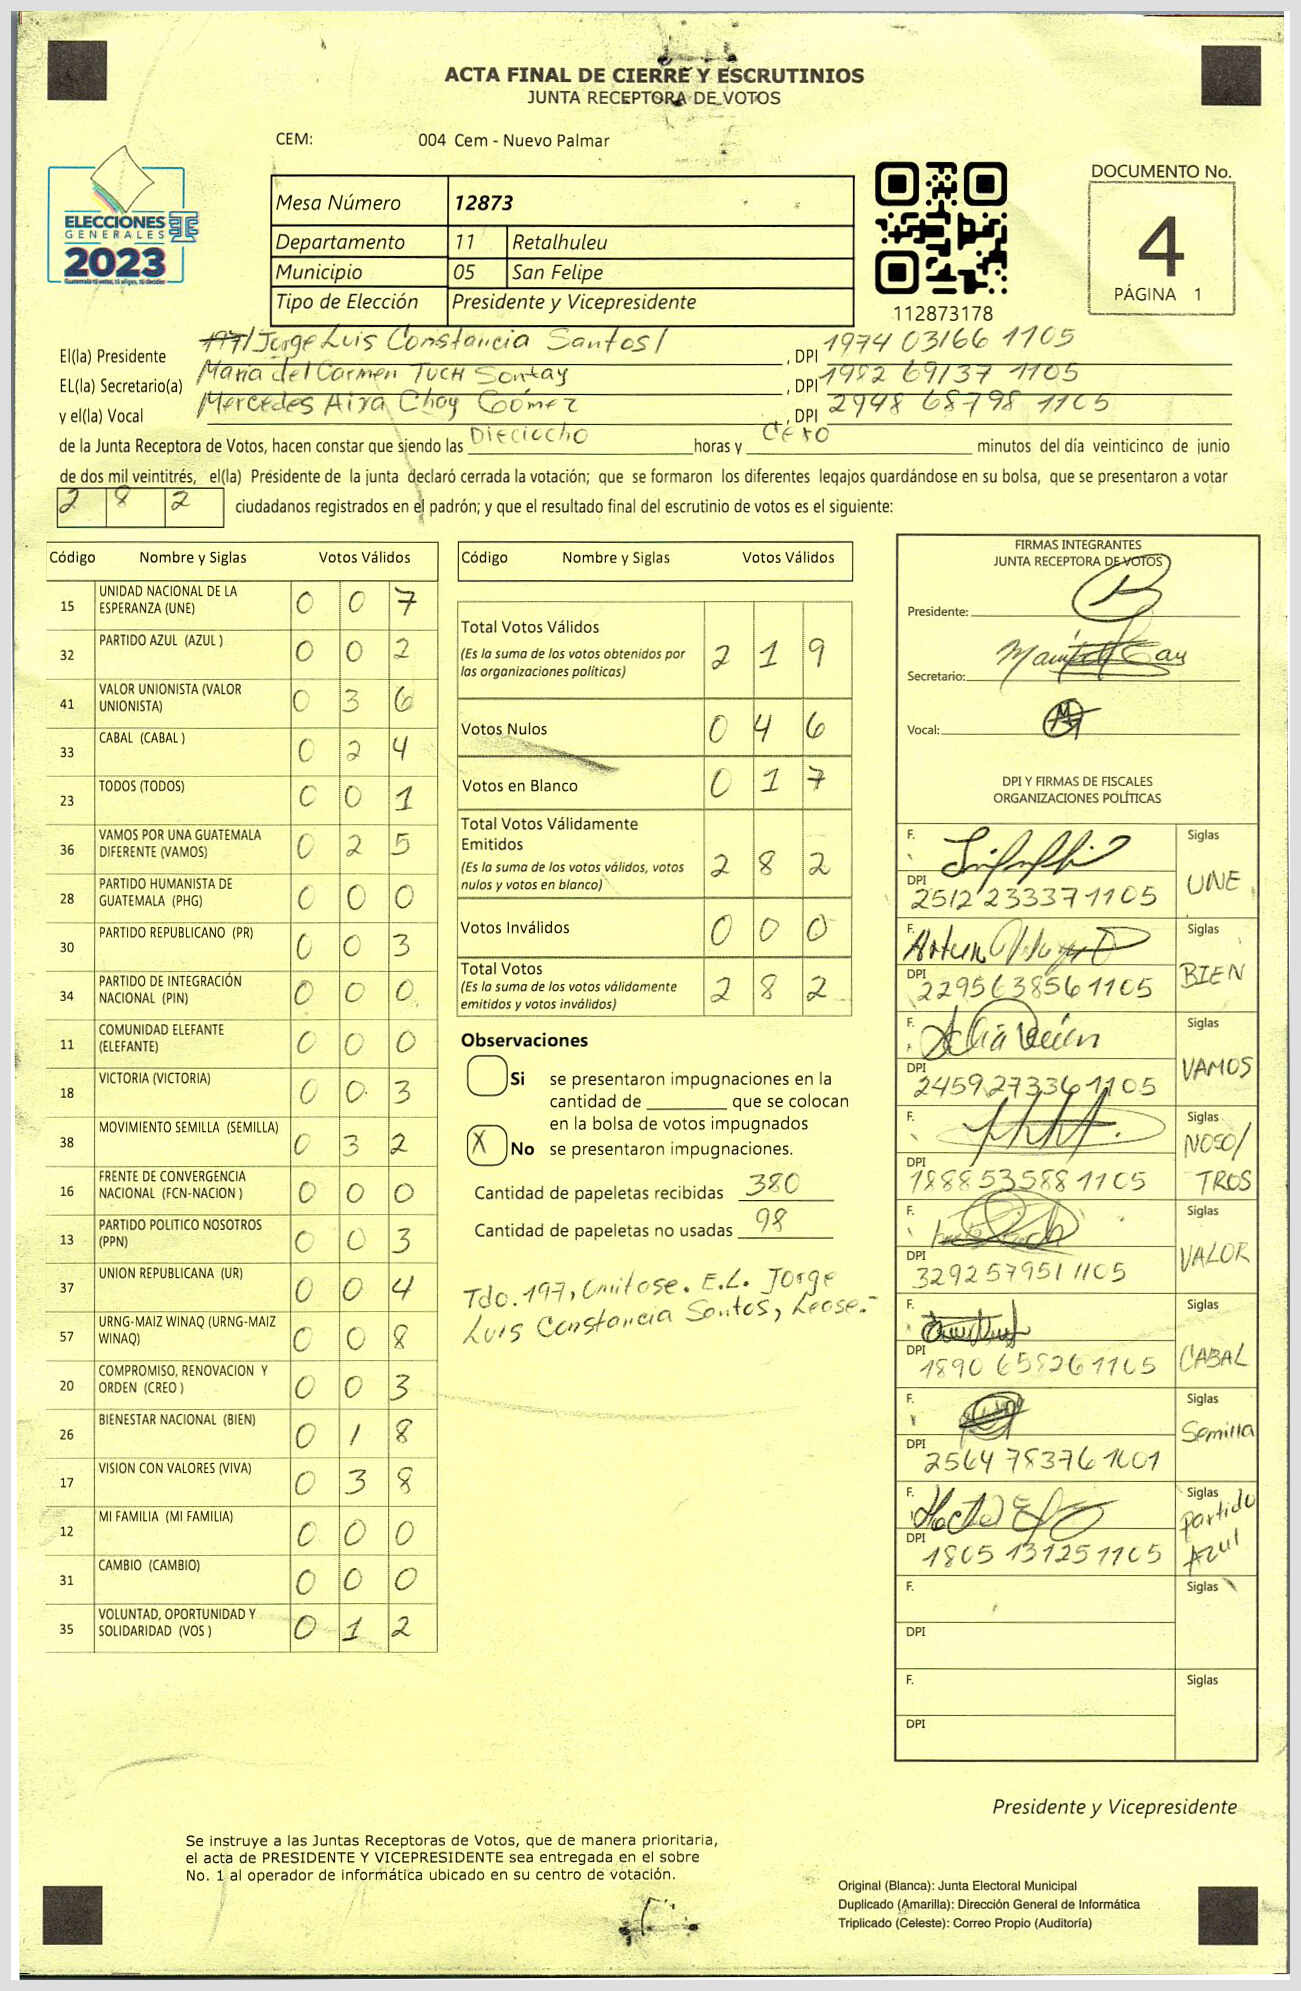 ACTA FINAL DE CIERRE Y ESCRUTINIOS
JUNTA RECEPTORA DE VOTOS
CEM: 004 Cem - Nuevo Palmar
ELECCIONES
GENERALES
2023
Guatemala tú votas, tú eliges, tú decides
Mesa Número 12873
Departamento 11 Retalhuleu
Municipio 05 San Felipe
Tipo de Elección Presidente y Vicepresidente
112873178
DOCUMENTO No.
4
PÁGINA 1
El(la) Presidente 197/Jorge Luis Constancia Santos/, DPI 1974 03166 1105
EL(la) Secretario(a) Maria del Carmen TUCH Sontay, DPI 1982 69137 1105
y el(la) Vocal Mercedes Aira Choy Gómez, DPI 2948 68798 1105
de la Junta Receptora de Votos, hacen constar que siendo las Dieciocho horas y cero minutos del día veinticinco de junio
de dos mil veintitrés, el(la) Presidente de la junta declaró cerrada la votación; que se formaron los diferentes legajos guardándose en su bolsa, que se presentaron a votar
2 8 2 ciudadanos registrados en el padrón; y que el resultado final del escrutinio de votos es el siguiente:
Código Nombre y Siglas Votos Válidos
15 UNIDAD NACIONAL DE LA ESPERANZA (UNE) 0 0 7
32 PARTIDO AZUL (AZUL ) 0 0 2
41 VALOR UNIONISTA (VALOR UNIONISTA) 0 3 6
33 CABAL (CABAL ) 0 2 4
23 TODOS (TODOS) 0 0 1
36 VAMOS POR UNA GUATEMALA DIFERENTE (VAMOS) 0 2 5
28 PARTIDO HUMANISTA DE GUATEMALA (PHG) 0 0 0
30 PARTIDO REPUBLICANO (PR) 0 0 3
34 PARTIDO DE INTEGRACIÓN NACIONAL (PIN) 0 0 0
11 COMUNIDAD ELEFANTE (ELEFANTE) 0 0 0
18 VICTORIA (VICTORIA) 0 0 3
38 MOVIMIENTO SEMILLA (SEMILLA) 0 3 2
16 FRENTE DE CONVERGENCIA NACIONAL (FCN-NACION ) 0 0 0
13 PARTIDO POLITICO NOSOTROS (PPN) 0 0 3
37 UNION REPUBLICANA (UR) 0 0 4
57 URNG-MAIZ WINAQ (URNG-MAIZ WINAQ) 0 0 8
20 COMPROMISO, RENOVACION Y ORDEN (CREO ) 0 0 3
26 BIENESTAR NACIONAL (BIEN) 0 1 8
17 VISION CON VALORES (VIVA) 0 3 8
12 MI FAMILIA (MI FAMILIA) 0 0 0
31 CAMBIO (CAMBIO) 0 0 0
35 VOLUNTAD, OPORTUNIDAD Y SOLIDARIDAD (VOS ) 0 1 2
Código Nombre y Siglas Votos Válidos
Total Votos Válidos 2 1 9
(Es la suma de los votos obtenidos por
las organizaciones políticas)
Votos Nulos 0 4 6
Votos en Blanco 0 1 7
Total Votos Válidamente
Emitidos 2 8 2
(Es la suma de los votos válidos, votos
nulos y votos en blanco)
Votos Inválidos 0 0 0
Total Votos 2 8 2
(Es la suma de los votos válidamente
emitidos y votos inválidos)
Observaciones
Si se presentaron impugnaciones en la
cantidad de ________ que se colocan
en la bolsa de votos impugnados
X No se presentaron impugnaciones.
Cantidad de papeletas recibidas 380
Cantidad de papeletas no usadas 98
Tdo. 197, Omitase. E.L. Jorge
Luis Constancia Santos, Lease.-
FIRMAS INTEGRANTES
JUNTA RECEPTORA DE VOTOS
Presidente:
Secretario:
Vocal:
DPI Y FIRMAS DE FISCALES
ORGANIZACIONES POLÍTICAS
F. Siglas UNE
DPI 2512 23337 1105
F. Siglas BIEN
DPI 2295638561105
F. Siglas VAMOS
DPI 2459273361105
F. Siglas NOSO/TROS
DPI 1888535881105
F. Siglas VALOR
DPI 3292579511105
F. Siglas CABAL
DPI 1890 65826 1105
F. Siglas Semilla
DPI 2564 78376 1601
F. Siglas Partido Azul
DPI 1805 13125 1105
F. Siglas
DPI
F. Siglas
DPI
Presidente y Vicepresidente
Se instruye a las Juntas Receptoras de Votos, que de manera prioritaria,
el acta de PRESIDENTE Y VICEPRESIDENTE sea entregada en el sobre
No. 1 al operador de informática ubicado en su centro de votación.
Original (Blanca): Junta Electoral Municipal
Duplicado (Amarilla): Dirección General de Informática
Triplicado (Celeste): Correo Propio (Auditoría)